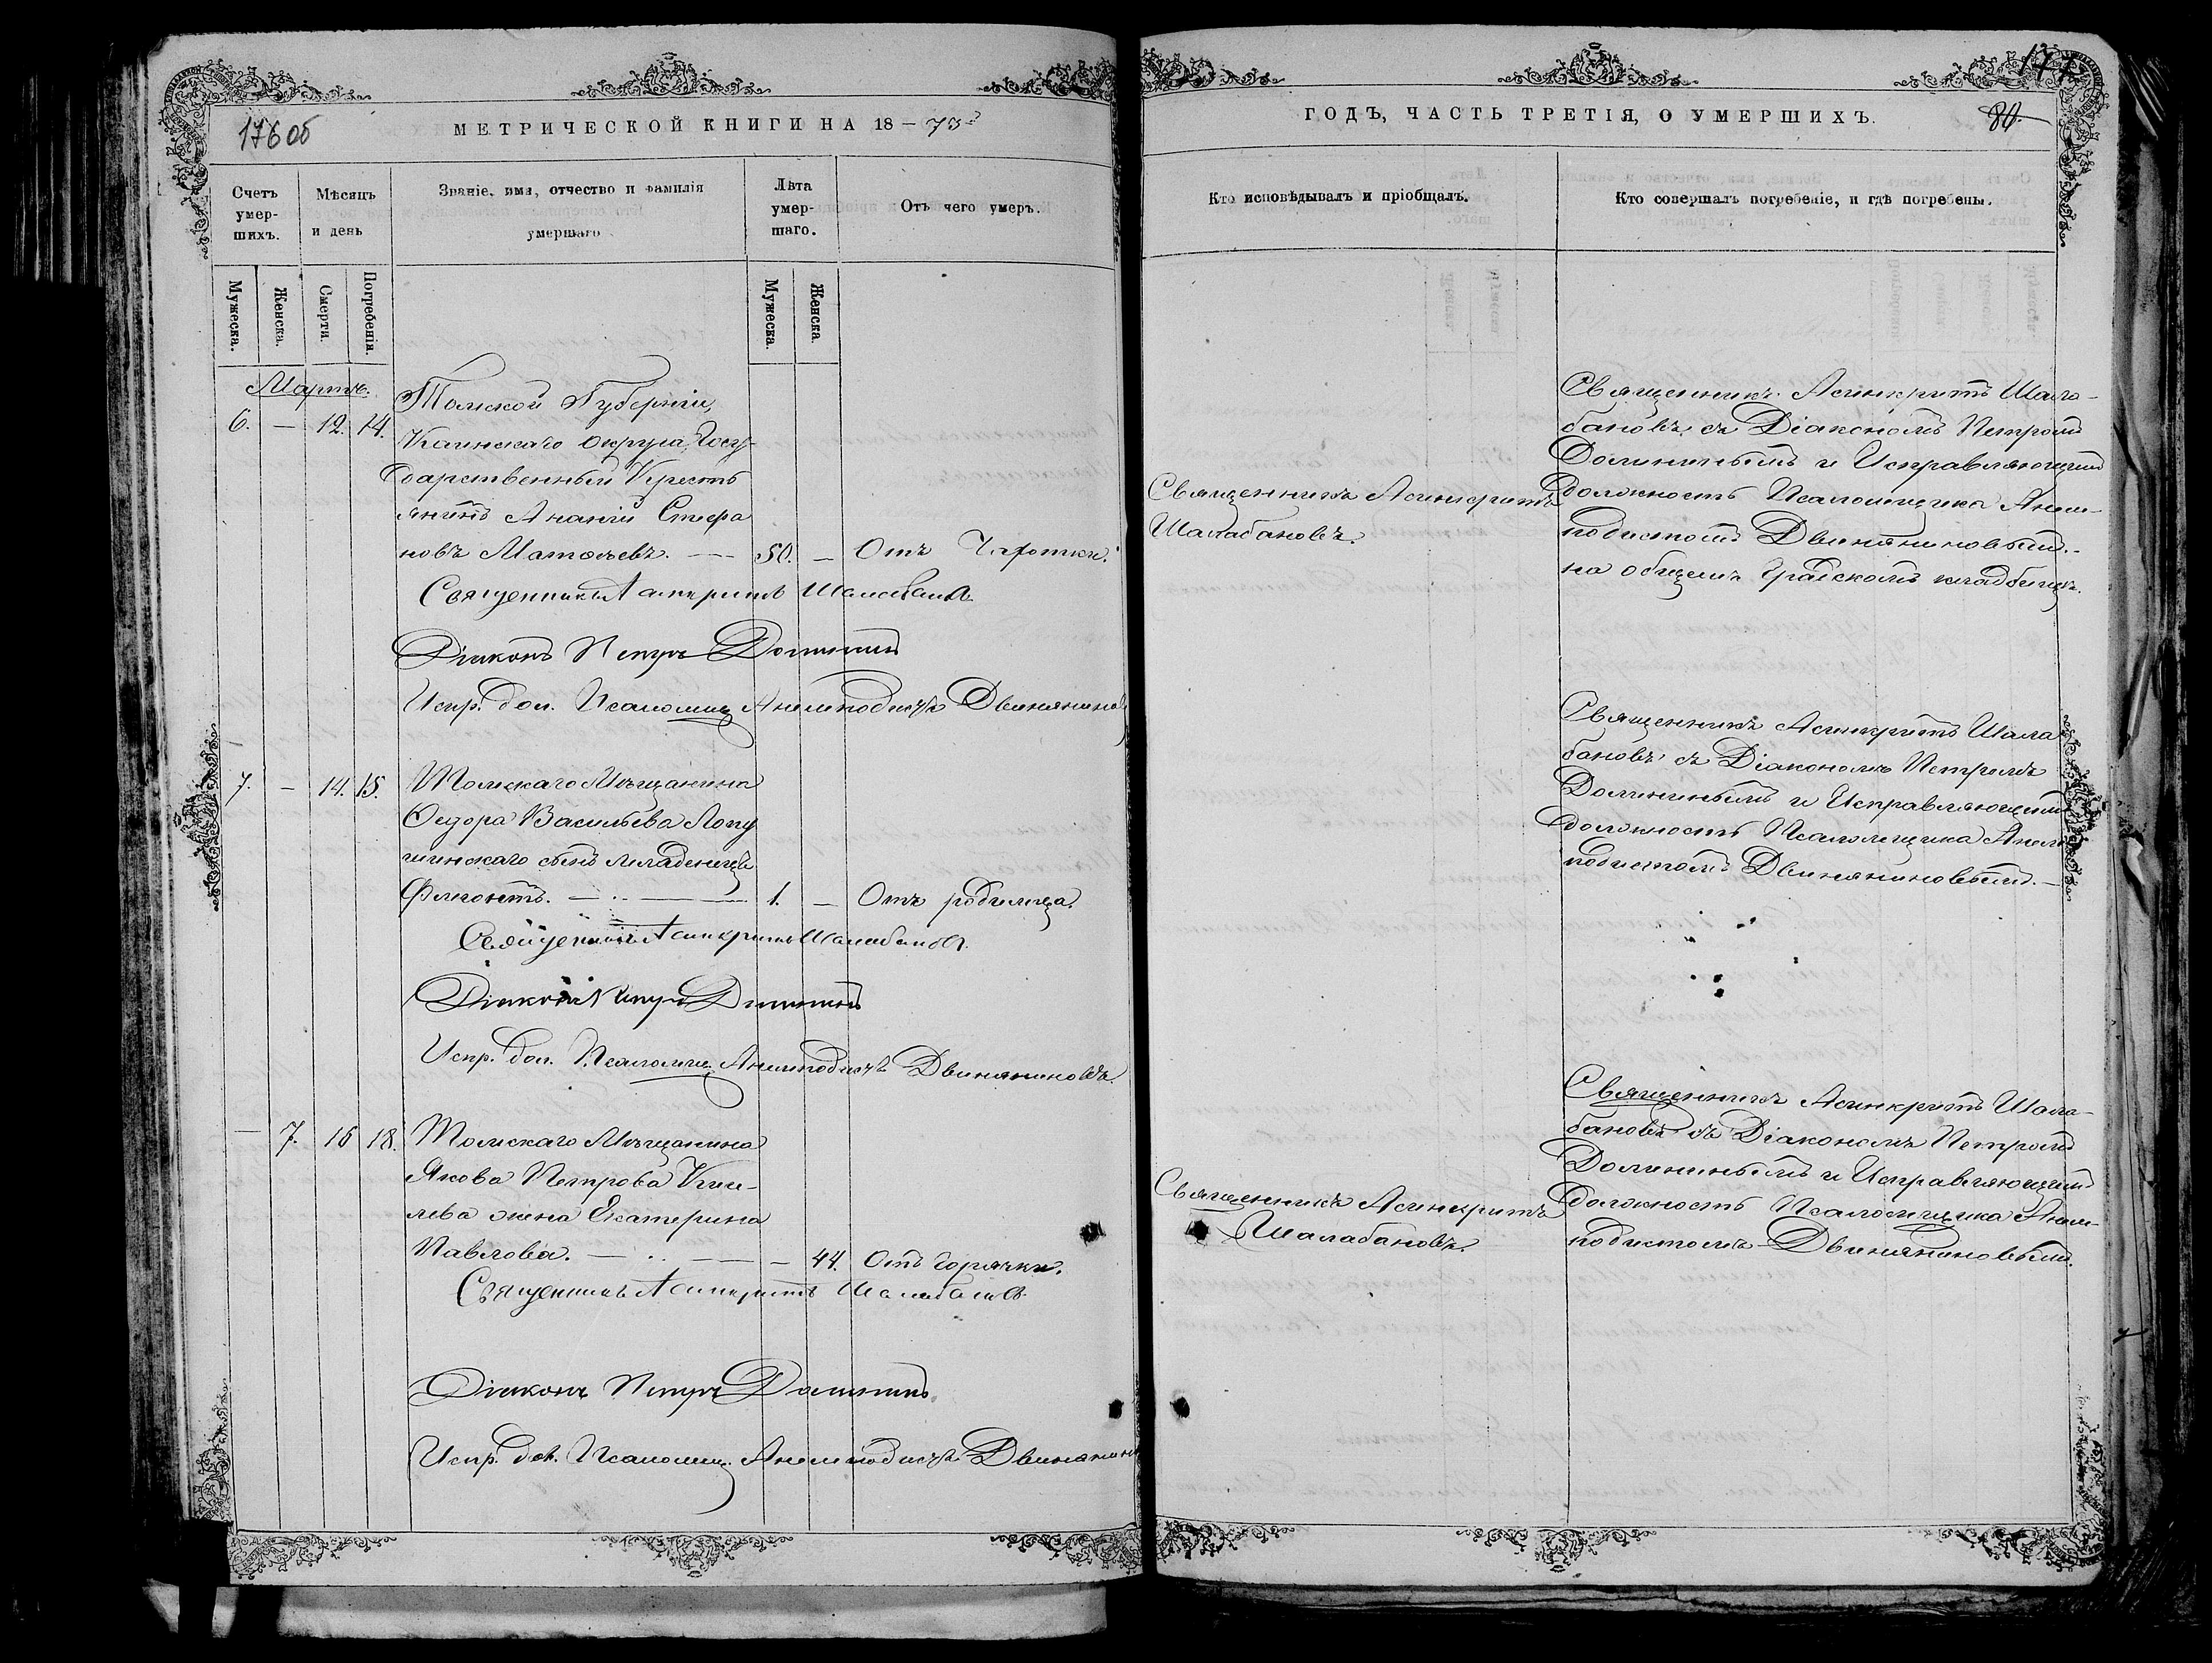 176 об
МЕТРИЧЕСКОЙ КНИГИ НА 18 — 73
Счетъ умершихъ.
Мѣсяцъ и день
Званіе, имя, отчество и фамилія умершаго
Лѣта умершаго.
Отъ чего умеръ.
Мужеска.
Женска.
Смерти.
Погребенія.
Мужеска.
Женска
Мартъ.
6. — 12. 14.
Томской Губерніи,
Каинскаго округа, Госу-
дарственный Кресть
янинъ Ананій Стефа
новъ Матвеевъ. — 50. — Отъ Чахотки.
Священникъ Асинкритъ Шалабановъ
Діаконъ Петръ Долининъ
Испр. дол. Псаломщ. Анемподистъ Двиняниновъ
7. — 14. 15.
Томскаго Мѣщанина
Федора Васильева Лопу
шинскаго сынъ младенецъ
— 1. — Отъ родимца.
Священникъ Асинкритъ Шалабановъ
Діаконъ Петръ Долининъ
Испр. дол. Псаломщ. Анемподистъ Двиняниновъ.
— 7. 16 18.
Томскаго Мѣщанина
Якова Петрова Кисе-
лева жена Екатерина
Павлова. — — 44. Отъ горячки.
Священникъ Асинкритъ Шалабановъ
Діаконъ Петръ Долининъ
Испр. дол. Псаломщ. Анемподистъ Двинянинъ
177
80.
ГОДЪ, ЧАСТЬ ТРЕТІЯ, О УМЕРШИХЪ.
Кто исповѣдывалъ и пріобщалъ.
Кто совершалъ погребеніе, и гдѣ погребены.
Священникъ Асинкритъ
Шалабановъ.
Священникъ Асинкритъ Шала-
бановъ съ Діакономъ Петромъ
Долининымъ и Исправляющимъ
должность Псаломщика Анем-
подистомъ Двиняниновымъ.
на общемъ градскомъ кладбищѣ.
Священникъ Асинкритъ Шала
бановъ съ Діакономъ Петромъ
Долининымъ и Исправляющимъ
должность Псаломщика Анем
подистомъ Двиняниновымъ. —
Священникъ Асинкритъ
Шалабановъ.
Священникъ Асинкритъ Шала-
бановъ съ Діакономъ Петромъ
Долининымъ и Исправляющимъ
должность Псаломщика Анем-
подистомъ Двиняниновымъ.